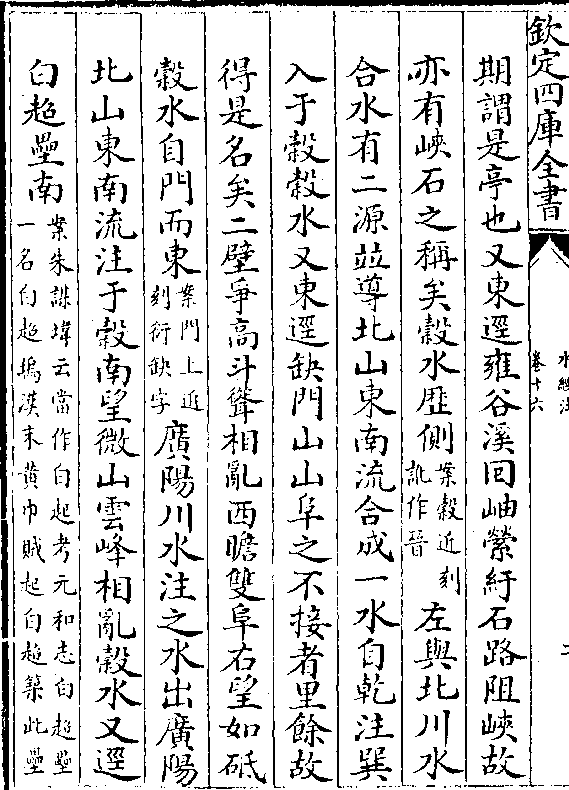 欽定四庫全書
水經注
卷十六
二
期謂是亭也又東逕雍谷溪回岫縈紆石路阻峽故
亦有峽石之稱矣穀水歷側案穀近刻訛作晉左與北川水
合水有二源並導北山東南流合成一水自乾注巽
入于穀穀水又東逕缺門山山阜之不接者里餘故
得是名矣二壁爭高斗聳相亂西瞻雙阜右望如砥
穀水自門而東案門上近刻衍缺字廣陽川水注之水出廣陽
北山東南流注于穀南望微山雲峰相亂穀水又逕
白超壘南案朱謀㙔云當作白起考元和志白超壘一名白超塢漢末黃巾賊起白超築此壘